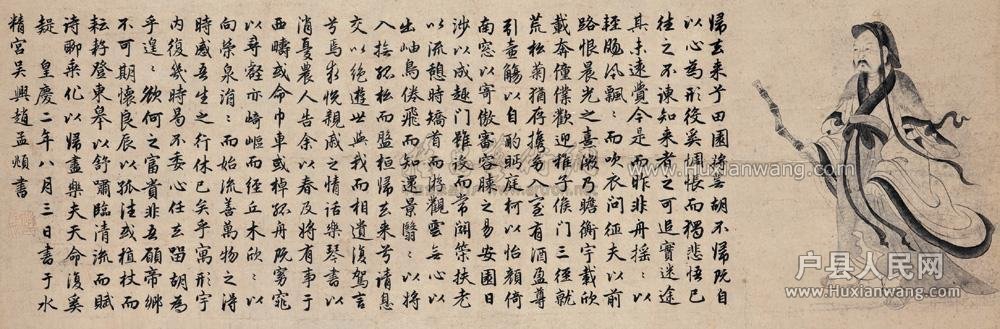 歸去来兮田園將蕪胡不歸既自
以心為形役奚惆悵而獨悲悟已
往之不諫知来者之可追實迷途
其未遠覺今是而昨非舟摇〻以
輕颺風飄〻而吹衣問征夫以前
路恨晨光之熹微乃瞻衡宇載欣
載奔僮僕歡迎稚子候門三徑就
荒松菊猶存携幼入室有酒盈尊
引壺觴以自酌眄庭柯以怡顏倚
南窓以寄傲審容膝之易安園日
涉以成趣門雖設而常關策扶老
以流憩時矯首而遐觀雲無心以
出岫鳥倦飛而知還景翳〻以將
入撫孤松而盤桓歸去来兮請息
交以絶遊世與我而相遺復駕言
兮焉求悅親戚之情話樂琴書以
消憂農人告余以春及將有事于
西疇或命巾車或棹孤舟既窈窕
以尋壑亦崎嶇而經丘木欣〻以
向榮泉涓〻而始流善萬物之得
時感吾生之行休已矣乎寓形宇
内復幾時曷不委心任去留胡為
乎遑〻欲何之富貴非吾願帝鄉
不可期懷良辰以孤往或植杖而
耘耔登東皋以舒嘯臨清流而賦
詩聊乘化以歸盡樂夫天命復奚
疑 皇慶二年八月三日書于水
精宮吳興趙孟頫書
户县人民网
www.Huxianwang.com
户县人民网
www.Huxianwang.com